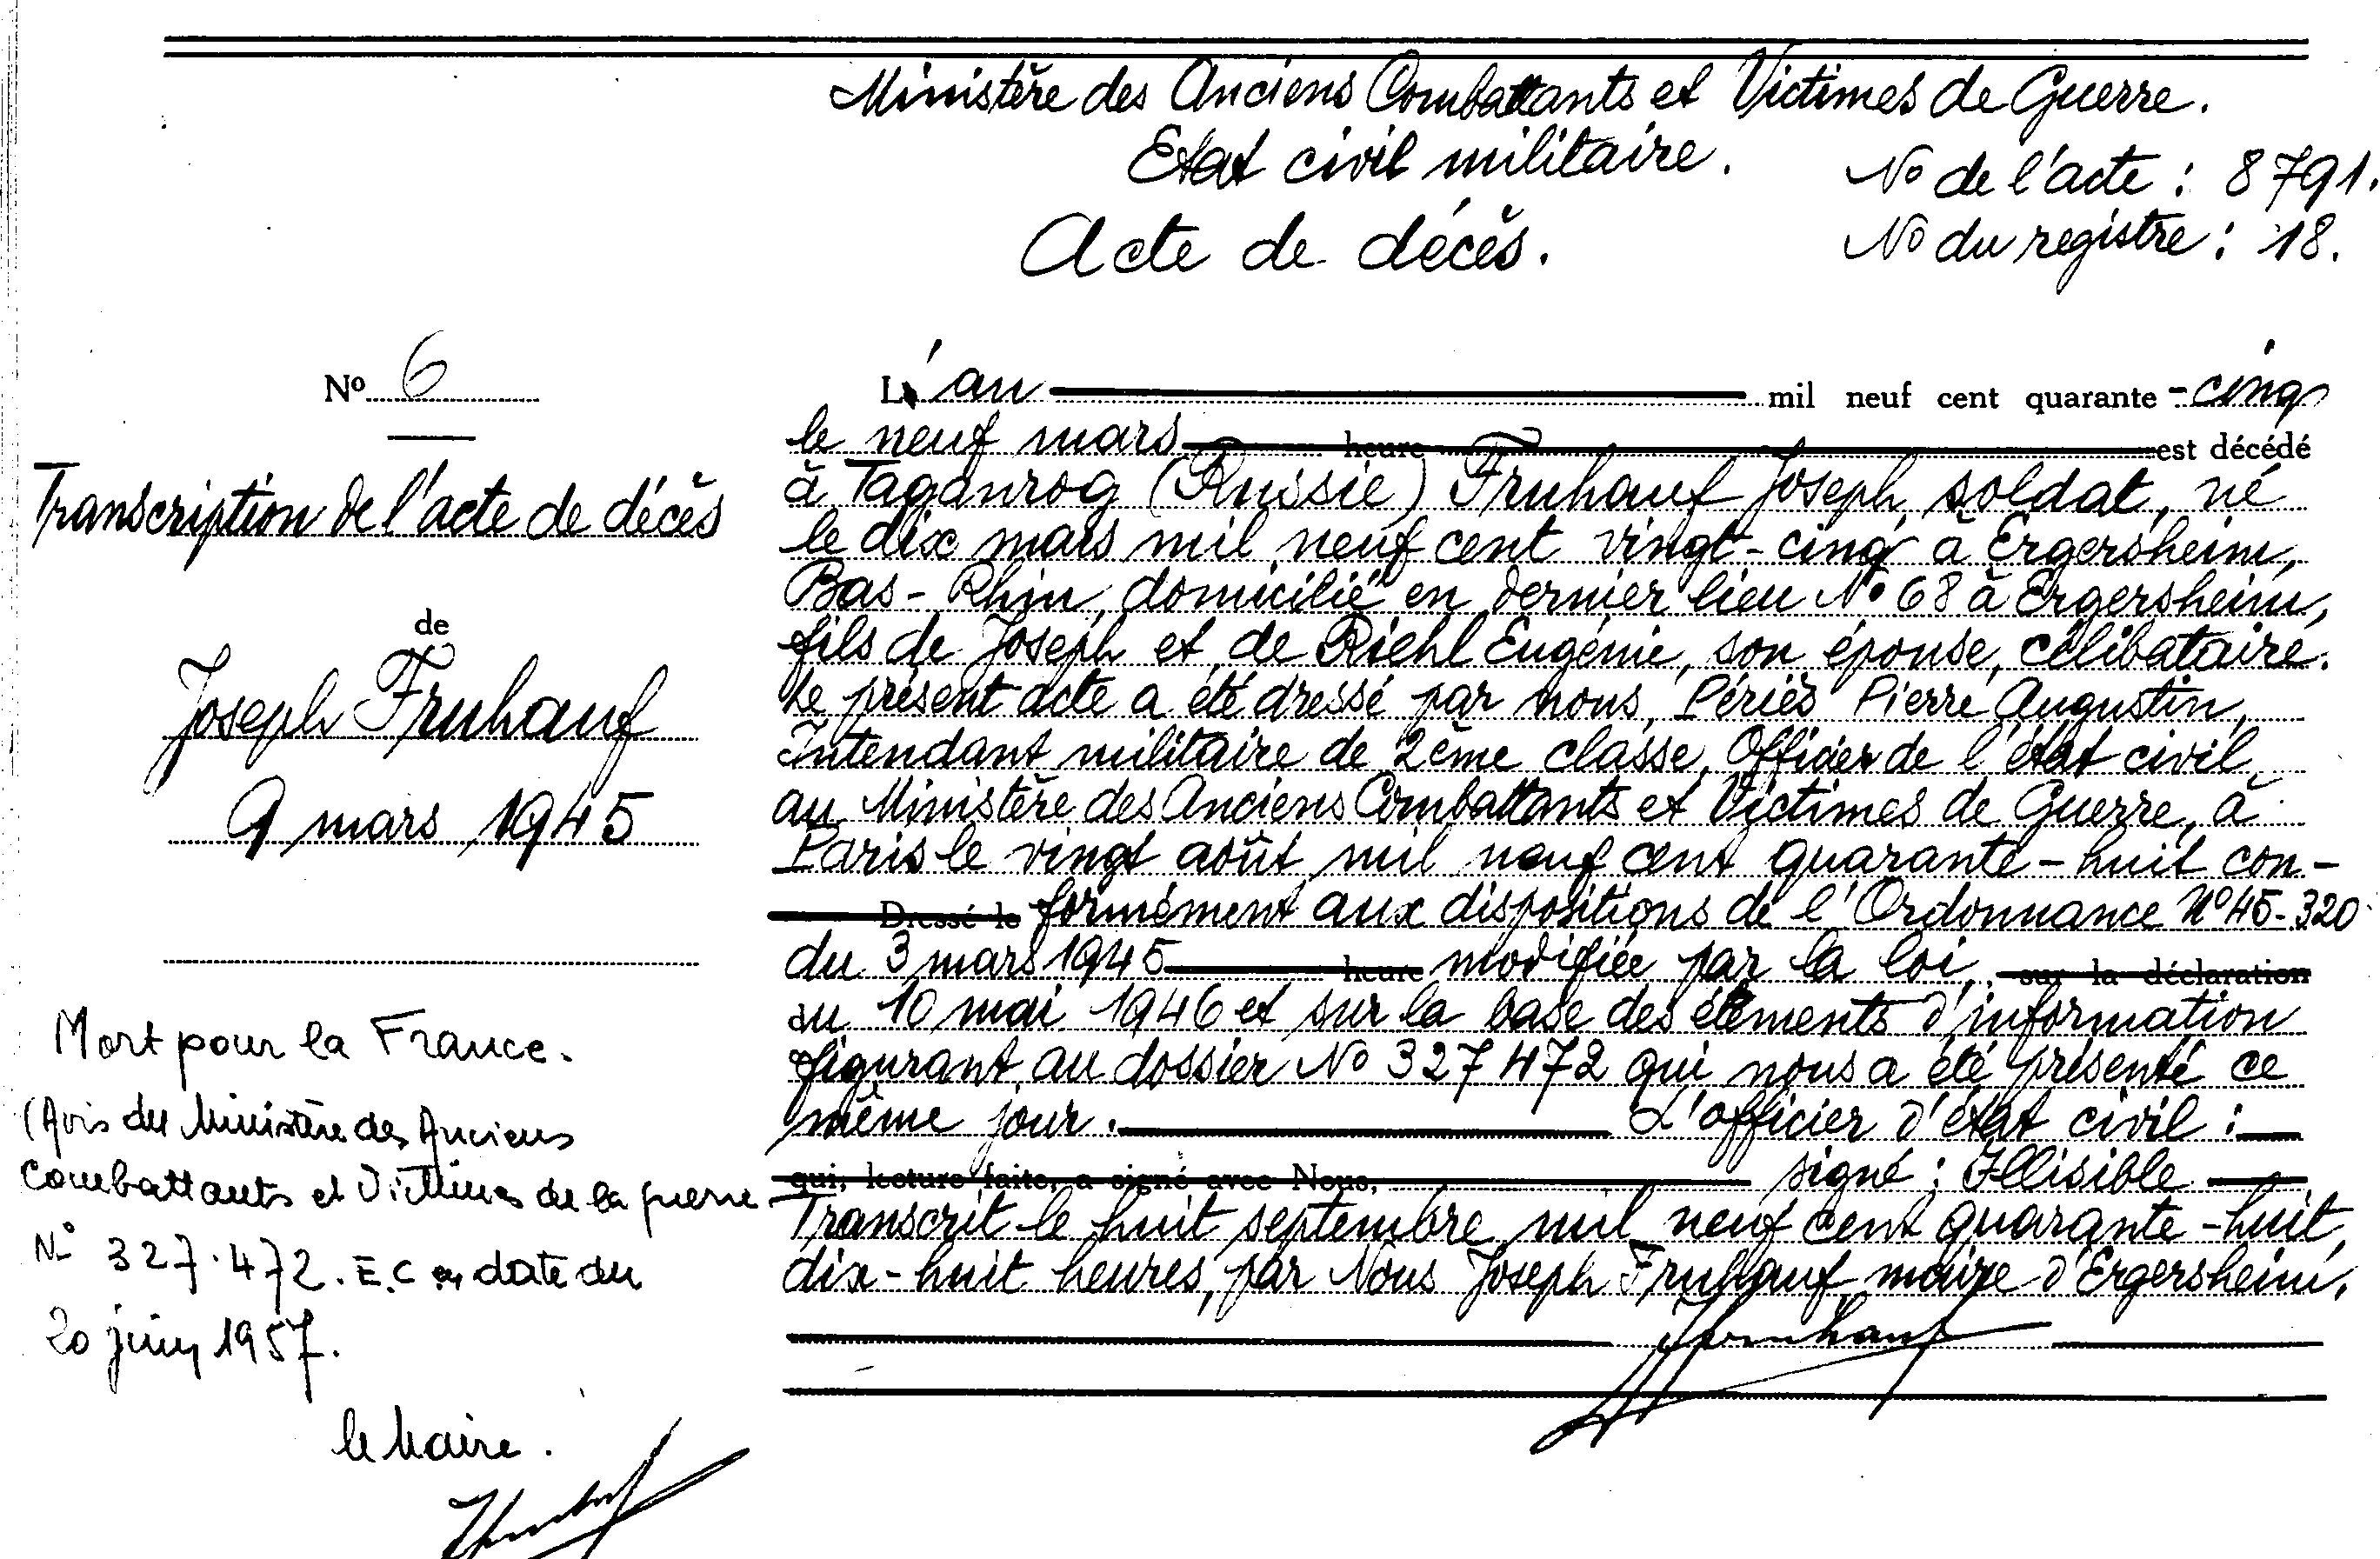 Ministère des Anciens Combattants et Victimes de Guerre.
Etat civil militaire.
No de l'acte : 8791.
Acte de décès.
No du registre : 18.
No 6
Transcription de l'acte de décès
de
Joseph Fruhauf
9 mars 1945
Mort pour la France.
(Avis du Ministère des Anciens
Combattants et Victimes de la guerre
No 327.472. E.C en date du
20 juin 1957.
le Maire.
L'an mil neuf cent quarante-cinq
le neuf mars heure est décédé
à Taganrog (Russie) Fruhauf Joseph, soldat, né
le dix mars mil neuf cent vingt-cinq à Ergersheim,
Bas-Rhin, domicilié en dernier lieu No 68 à Ergersheim,
fils de Joseph et de Riehl Eugénie, son épouse, célibataire.
Le présent acte a été dressé par nous, Périès Pierre Augustin,
Intendant militaire de 2ème classe, Officier de l'état civil
au Ministère des Anciens Combattants et Victimes de Guerre, à
Paris le vingt août mil neuf cent quarante-huit con-
Dressé le formément aux dispositions de l'Ordonnance No 45-320
du 3 mars 1945 heure modifiée par la loi, sur la déclaration
du 10 mai 1946 et sur la base des éléments d'information
figurant au dossier No 327472 qui nous a été présenté ce
même jour. L'officier d'état civil :
qui, lecture faite, a signé avec Nous, signé : Illisible
Transcrit le huit septembre mil neuf cent quarante-huit,
dix-huit heures, par Nous Joseph Fruhauf, maire d'Ergersheim.
Fruhauf